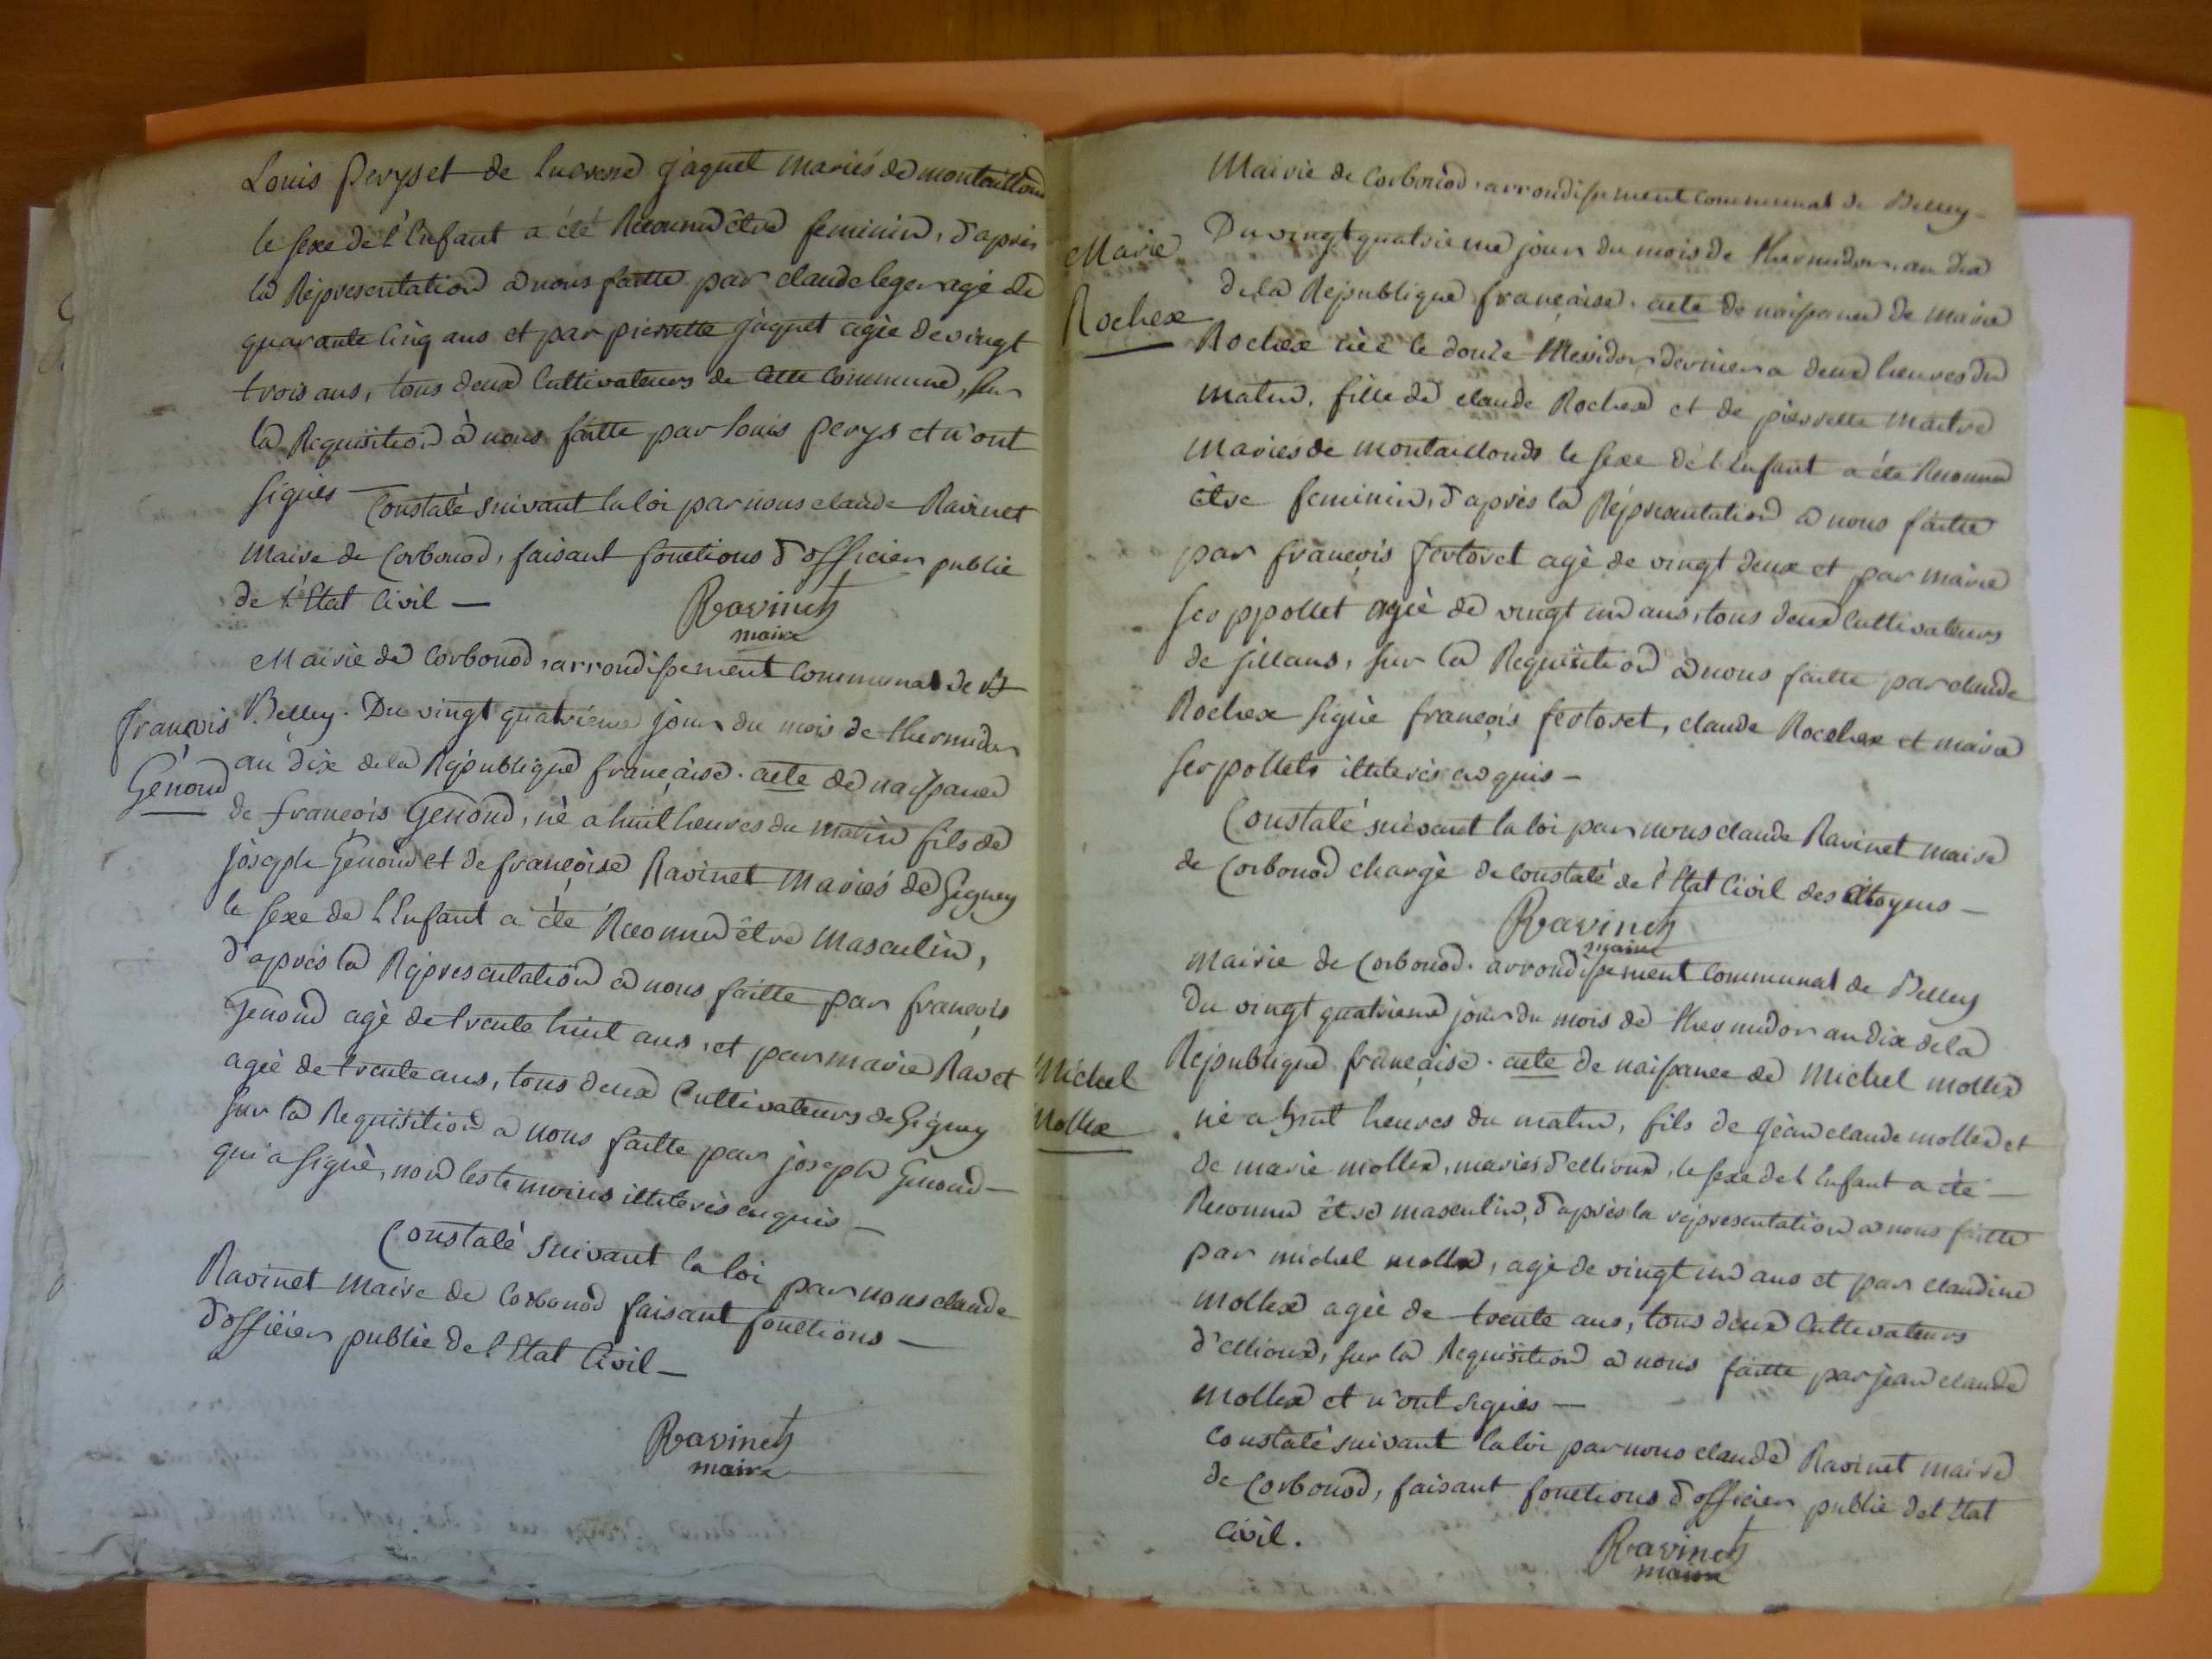 Louis Peryset de Lucresse jaquet mariés de montaillond
le sexe de l'Enfant a été Reconnu être feminin, d'après
la Représentation a nous faitte par claude leger agé de
quarante cinq ans et par pierrette jàquet agée de vingt
trois ans, tous deux Cultivateurs de cette commune, sur
la Requisition à nous faitte par louis perys et n'ont
signés
Constaté suivant la loi par nous claude Ravinet
maire de Corbonod, faisant fonctions d'officier public
de l'Etat Civil —
Ravinet
maire
Mairie de Corbonod, arrondissement Communal de B
françois
Genoud
Belley. Du vingt quatrieme jour du mois de thermidor
an dix de la République françàise. acte de naissance
de françois Genoud, né a huit heures du matin fils de
jòseph Genoud et de françoise Ravinet mariés de Gigney
le sexe de l'Enfant a été Reconnu être masculin,
d'après la Réprésentation a nous faitte par françois
Genoud agé de trente huit ans, et par marie Ravet
agée de trente ans, tous deux Cultivateurs de Gigney
sur la Requisition a nous faitte par joseph Genoud —
qui a signé, non les temoins illiterés enquis —
Constaté suivant la loi par nous claude
Ravinet maire de Corbonod faisant fonctions —
d'officier public de l'Etat Civil —
Ravinet
maire
Mairie de Corbonod, arrondissement communal de Belley —
Marie
Rochex
Du vingt quatrieme jour du mois de thermidor, an dix
de la République françàise. acte de naissance de marie
Rochex née le douze Messidor dernier a deux heures du
matin, fille de claude Rochex et de pierrette maitre
mariés de montaillond le sexe de l'Enfant a été Reconnu
être feminin, d'après la Réprésentation a nous faitte
par françois fertoret agé de vingt deux et par marie
serppollet agée de vingt un ans, tous deux Cultivateurs
de sillans, sur la Requisition a nous faitte par claude
Rochex signé françois fertoret, claude Rocchex et marie
serpollets illiterés enquis —
Constaté suivant la loi par nous claude Ravinet maire
de Corbonod chargé de constaté de l'Etat Civil des Citoyens —
Ravinet
maire
Mairie de Corbonod. arrondissement communal de Belley
Du vingt quatrieme jour du mois de thermidor an dix de la
Michel
Mollex
République françàise. acte de naissance de Michel mollex
né a huit heures du matin, fils de jean claude mollex et
de marie mollex, mariés d'ellioux, le sexe de l'Enfant a été —
Reconnu être masculin, d'après la réprésentation a nous faitte
par michel mollex, agé de vingt un ans et par claudine
mollex agée de trente ans, tous deux Cultivateurs
d'ellioux, sur la Requisition a nous faitte par jean claude
mollex et n'ont signés —
Constaté suivant la loi par nous claude Ravinet maire
de Corbonod, faisant fonctions d'officier public de l'Etat
Civil.
Ravinet
maire